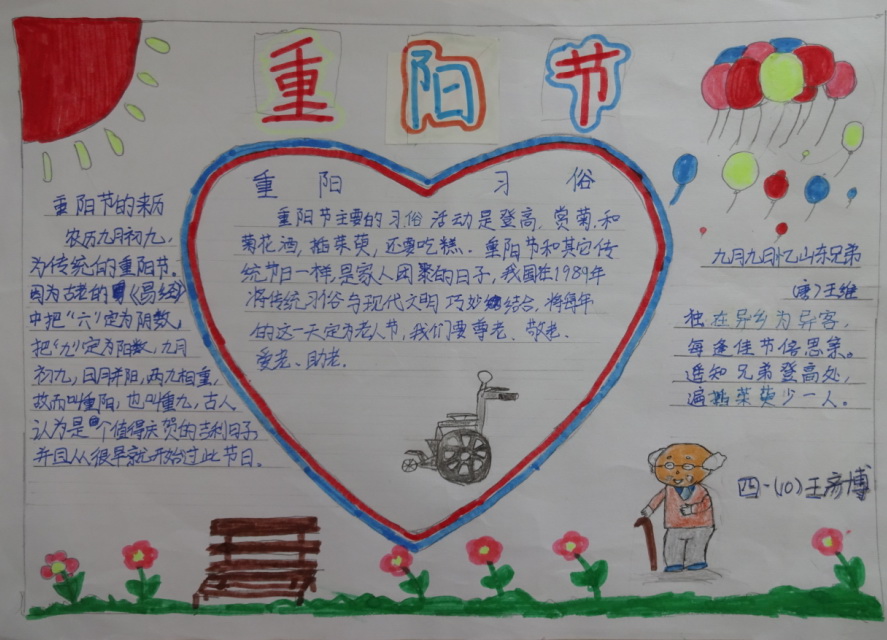 重阳节
重阳节的来历
农历九月初九，
为传统的重阳节。
因为古老的《易经》
中把“六”定为阴数，
把“九”定为阳数，九月
初九，日月并阳，两九相重，
故而叫重阳，也叫重九，古人
认为是个值得庆贺的吉利日子
并且从很早就开始过此节日。
重阳习俗
重阳节主要的习俗活动是登高，赏菊，和
菊花酒，插茱萸，还要吃糕。重阳节和其它传
统节日一样，是家人团聚的日子，我国在1989年
将传统习俗与现代文明巧妙结合，将每年
的这一天定为老人节，我们要尊老、敬老、
爱老、助老。
九月九日忆山东兄弟
（唐）王维
独在异乡为异客，
每逢佳节倍思亲。
遥知兄弟登高处，
遍插茱萸少一人。
四·(10)王彦博